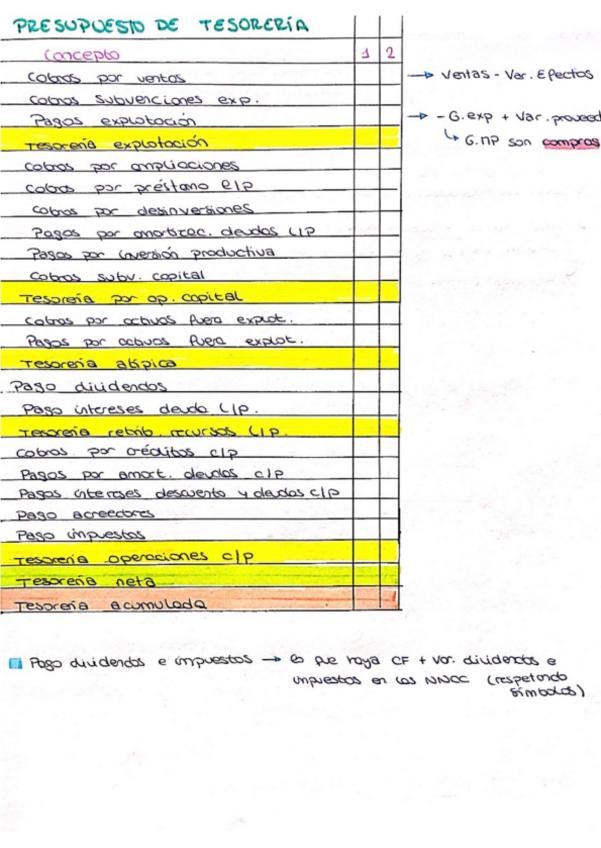 PRESUPUESTO DE TESORERÍA
Concepto 1 2
Cobros por ventas → Ventas - Var. Efectos
Cobros subvenciones exp.
Pagos explotación → - G.exp + Var. proveed
Tesorería explotación ↳ G.MP son compras
Cobros por ampliaciones
Cobros por préstamo e/p
Cobros por desinversiones
Pagos por amortizac. deudas L/P
Pagos por inversión productiva
Cobros subv. capital
Tesorería por op. capital
Cobros por activos fuera explot.
Pagos por activos fuera explot.
Tesorería atípica
Pago dividendos
Pago intereses deuda L/P.
Tesorería retrib. recursos L/P.
Cobros por créditos c/p
Pagos por amort. deudas c/p
Pagos intereses descuento y deudas c/p
Pago acreedores
Pago impuestos
Tesorería operaciones c/p
Tesorería neta
Tesorería acumulada
Pago dividendos e impuestos → Lo que haya CF + Var. dividendos e
impuestos en las NNCC (respetando
símbolos)